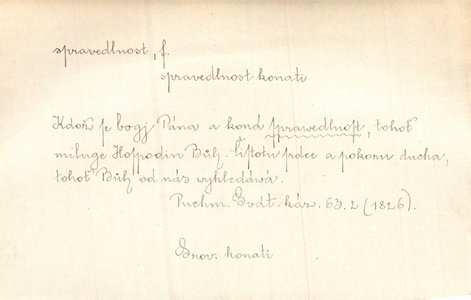 spravedlnost, f.
spravedlnost konati
Kdož se bogj Pána a koná sprawedlnost, tohoť
miluge Hospodin Bůh. čistotu srdce a pokoru ducha,
tohoť Bůh od nás wyhledáwá.
Puchm. Svát. káz. 63. 2 (1826).
Srov. konati